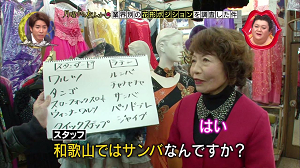 業界別の花形ポジションを調査した件
スタンダード
ラテン
ワルツ
ルンバ
タンゴ
チャチャチャ
スローフォックストロット
サンバ
ウィンナーワルツ
パソドブレ
クイックステップ
ジャイブ
はい
スタッフ
和歌山ではサンバなんですか?